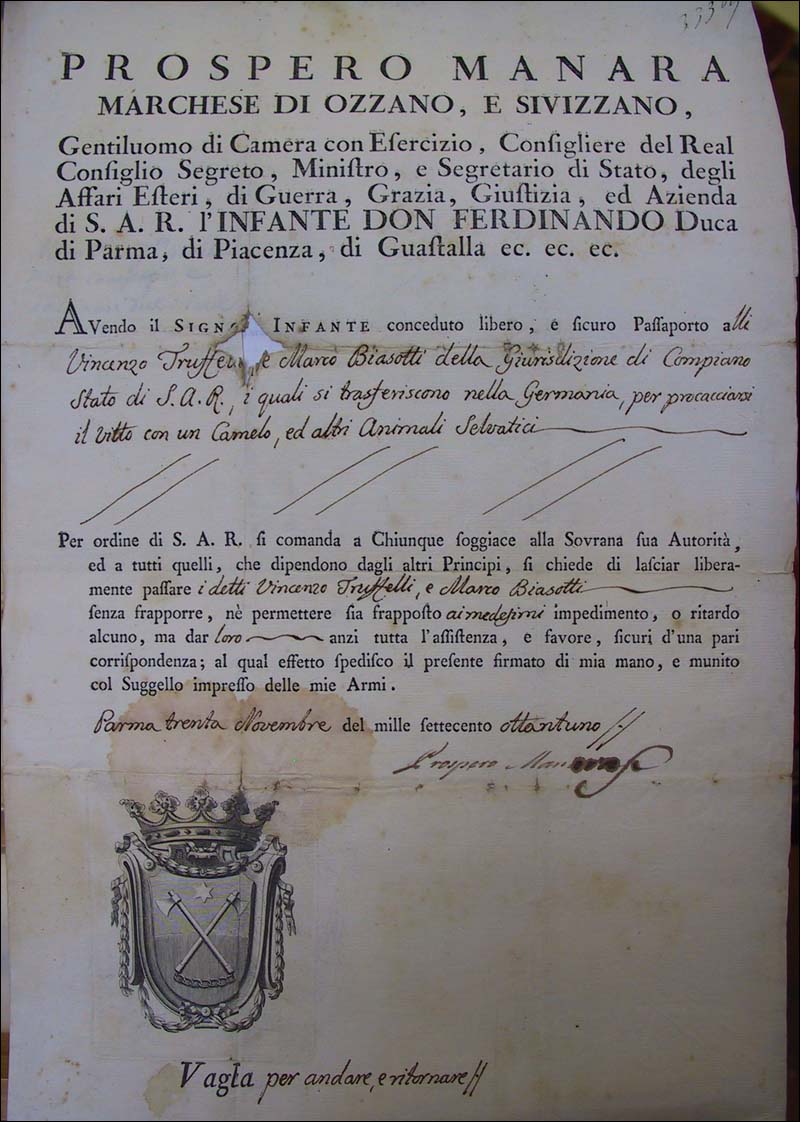 PROSPERO MANARA
MARCHESE DI OZZANO, E SIVIZZANO,
Gentiluomo di Camera con Eſercizio, Conſigliere del Real
Conſiglio Segreto, Miniſtro, e Segretario di Stato, degli
Affari Eſteri, di Guerra, Grazia, Giuſtizia, ed Azienda
di S. A. R. l'INFANTE DON FERDINANDO Duca
di Parma, di Piacenza, di Guaſtalla ec. ec. ec.
AVendo il INFANTE conceduto libero, e ſicuro Paſſaporto alli
Vincenzo e Marco Biasotti della Giurisdizione di Compiano
Stato di S. A. R., i quali si trasferiscono nella Germania, per procacciarsi
il Vitto con un Camelo, ed altri Animali Selvatici
Per ordine di S. A. R. ſi comanda a Chiunque ſoggiace alla Sovrana ſua Autorità,
ed a tutti quelli, che dipendono dagli altri Principi, ſi chiede di laſciar libera-
mente paſſare i detti Vincenzo Truffelli, e Marco Biasotti
ſenza frapporre, nè permettere ſia frappoſto ai medesimi impedimento, o ritardo
alcuno, ma dar loro anzi tutta l'aſſiſtenza, e favore, ſicuri d'una pari
corriſpondenza; al qual effetto ſpediſco il preſente firmato di mia mano, e munito
col Suggello impreſſo delle mie Armi.
Parma trenta Novembre del mille ſettecento ottantuno
Prospero Manara
Vaglia per andare, e ritornare